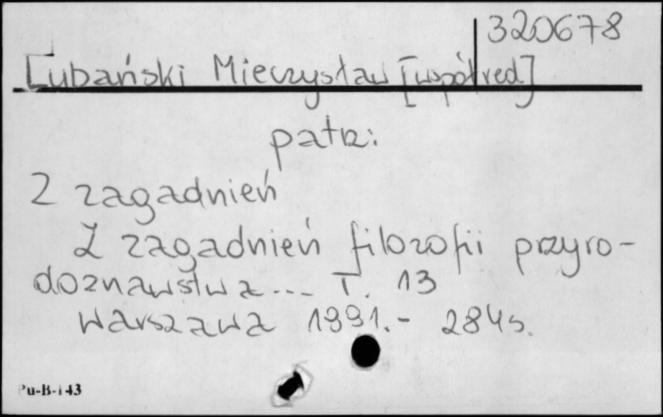 320678
Lubański Mieczysław [współred]
patrz:
Z zagadnień
Z zagadnień filozofii przyro-
doznawstwa... T. 13
Warszawa 1991.- 284s.
Pu-B-143